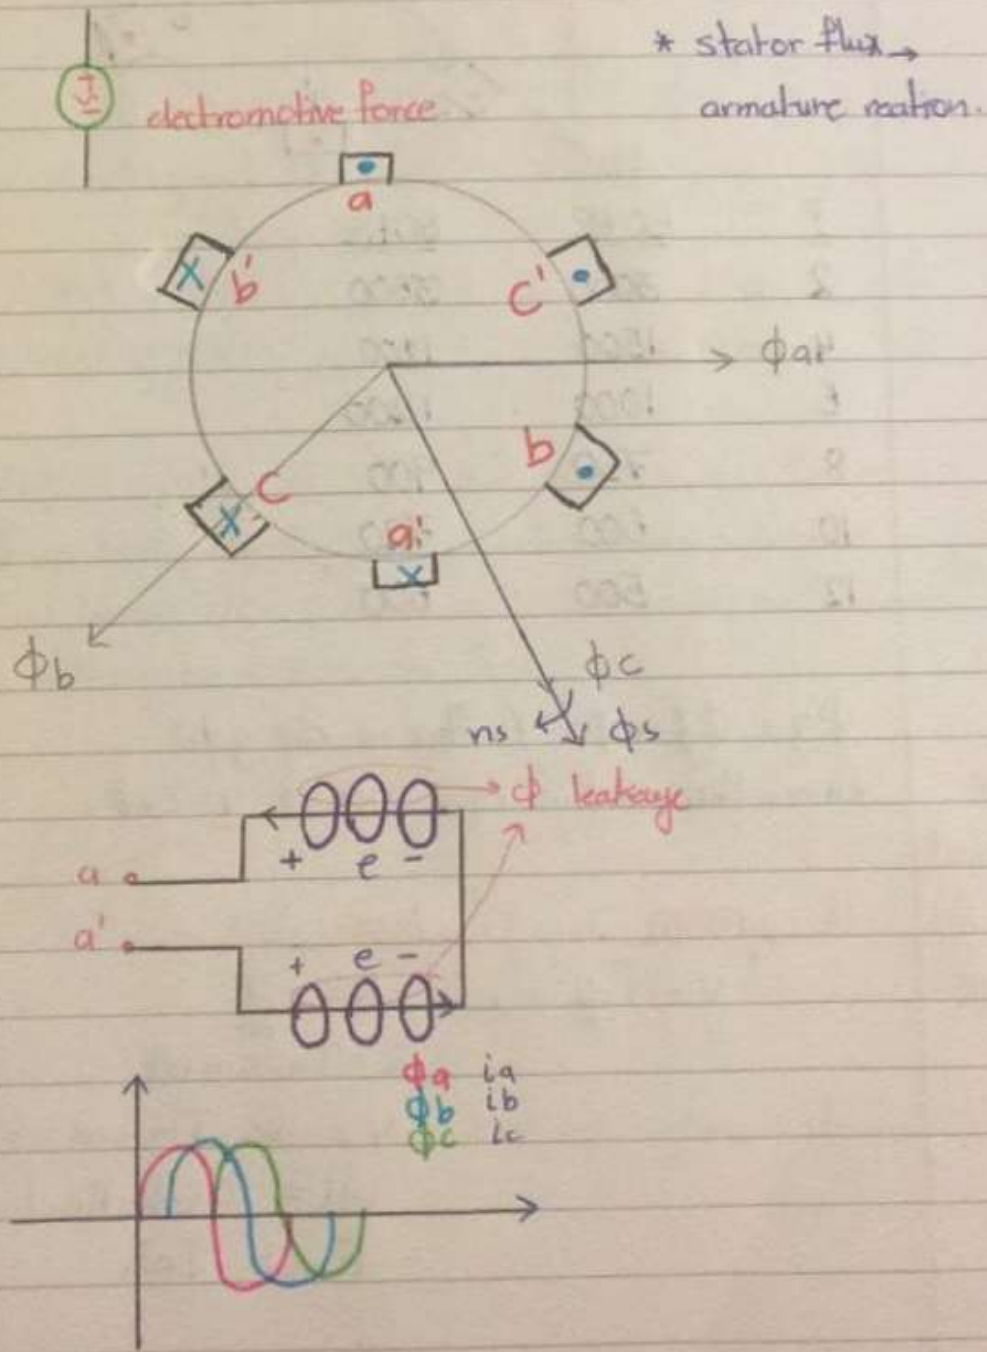 * stator flux →
armature reation.
electromotive force
a
b'
c'
ϕa
b
c
a'
ϕb
ϕc
ns
ϕs
ϕ leakage
+ e -
a
a'
+ e -
ϕa ia
ϕb ib
ϕc ic